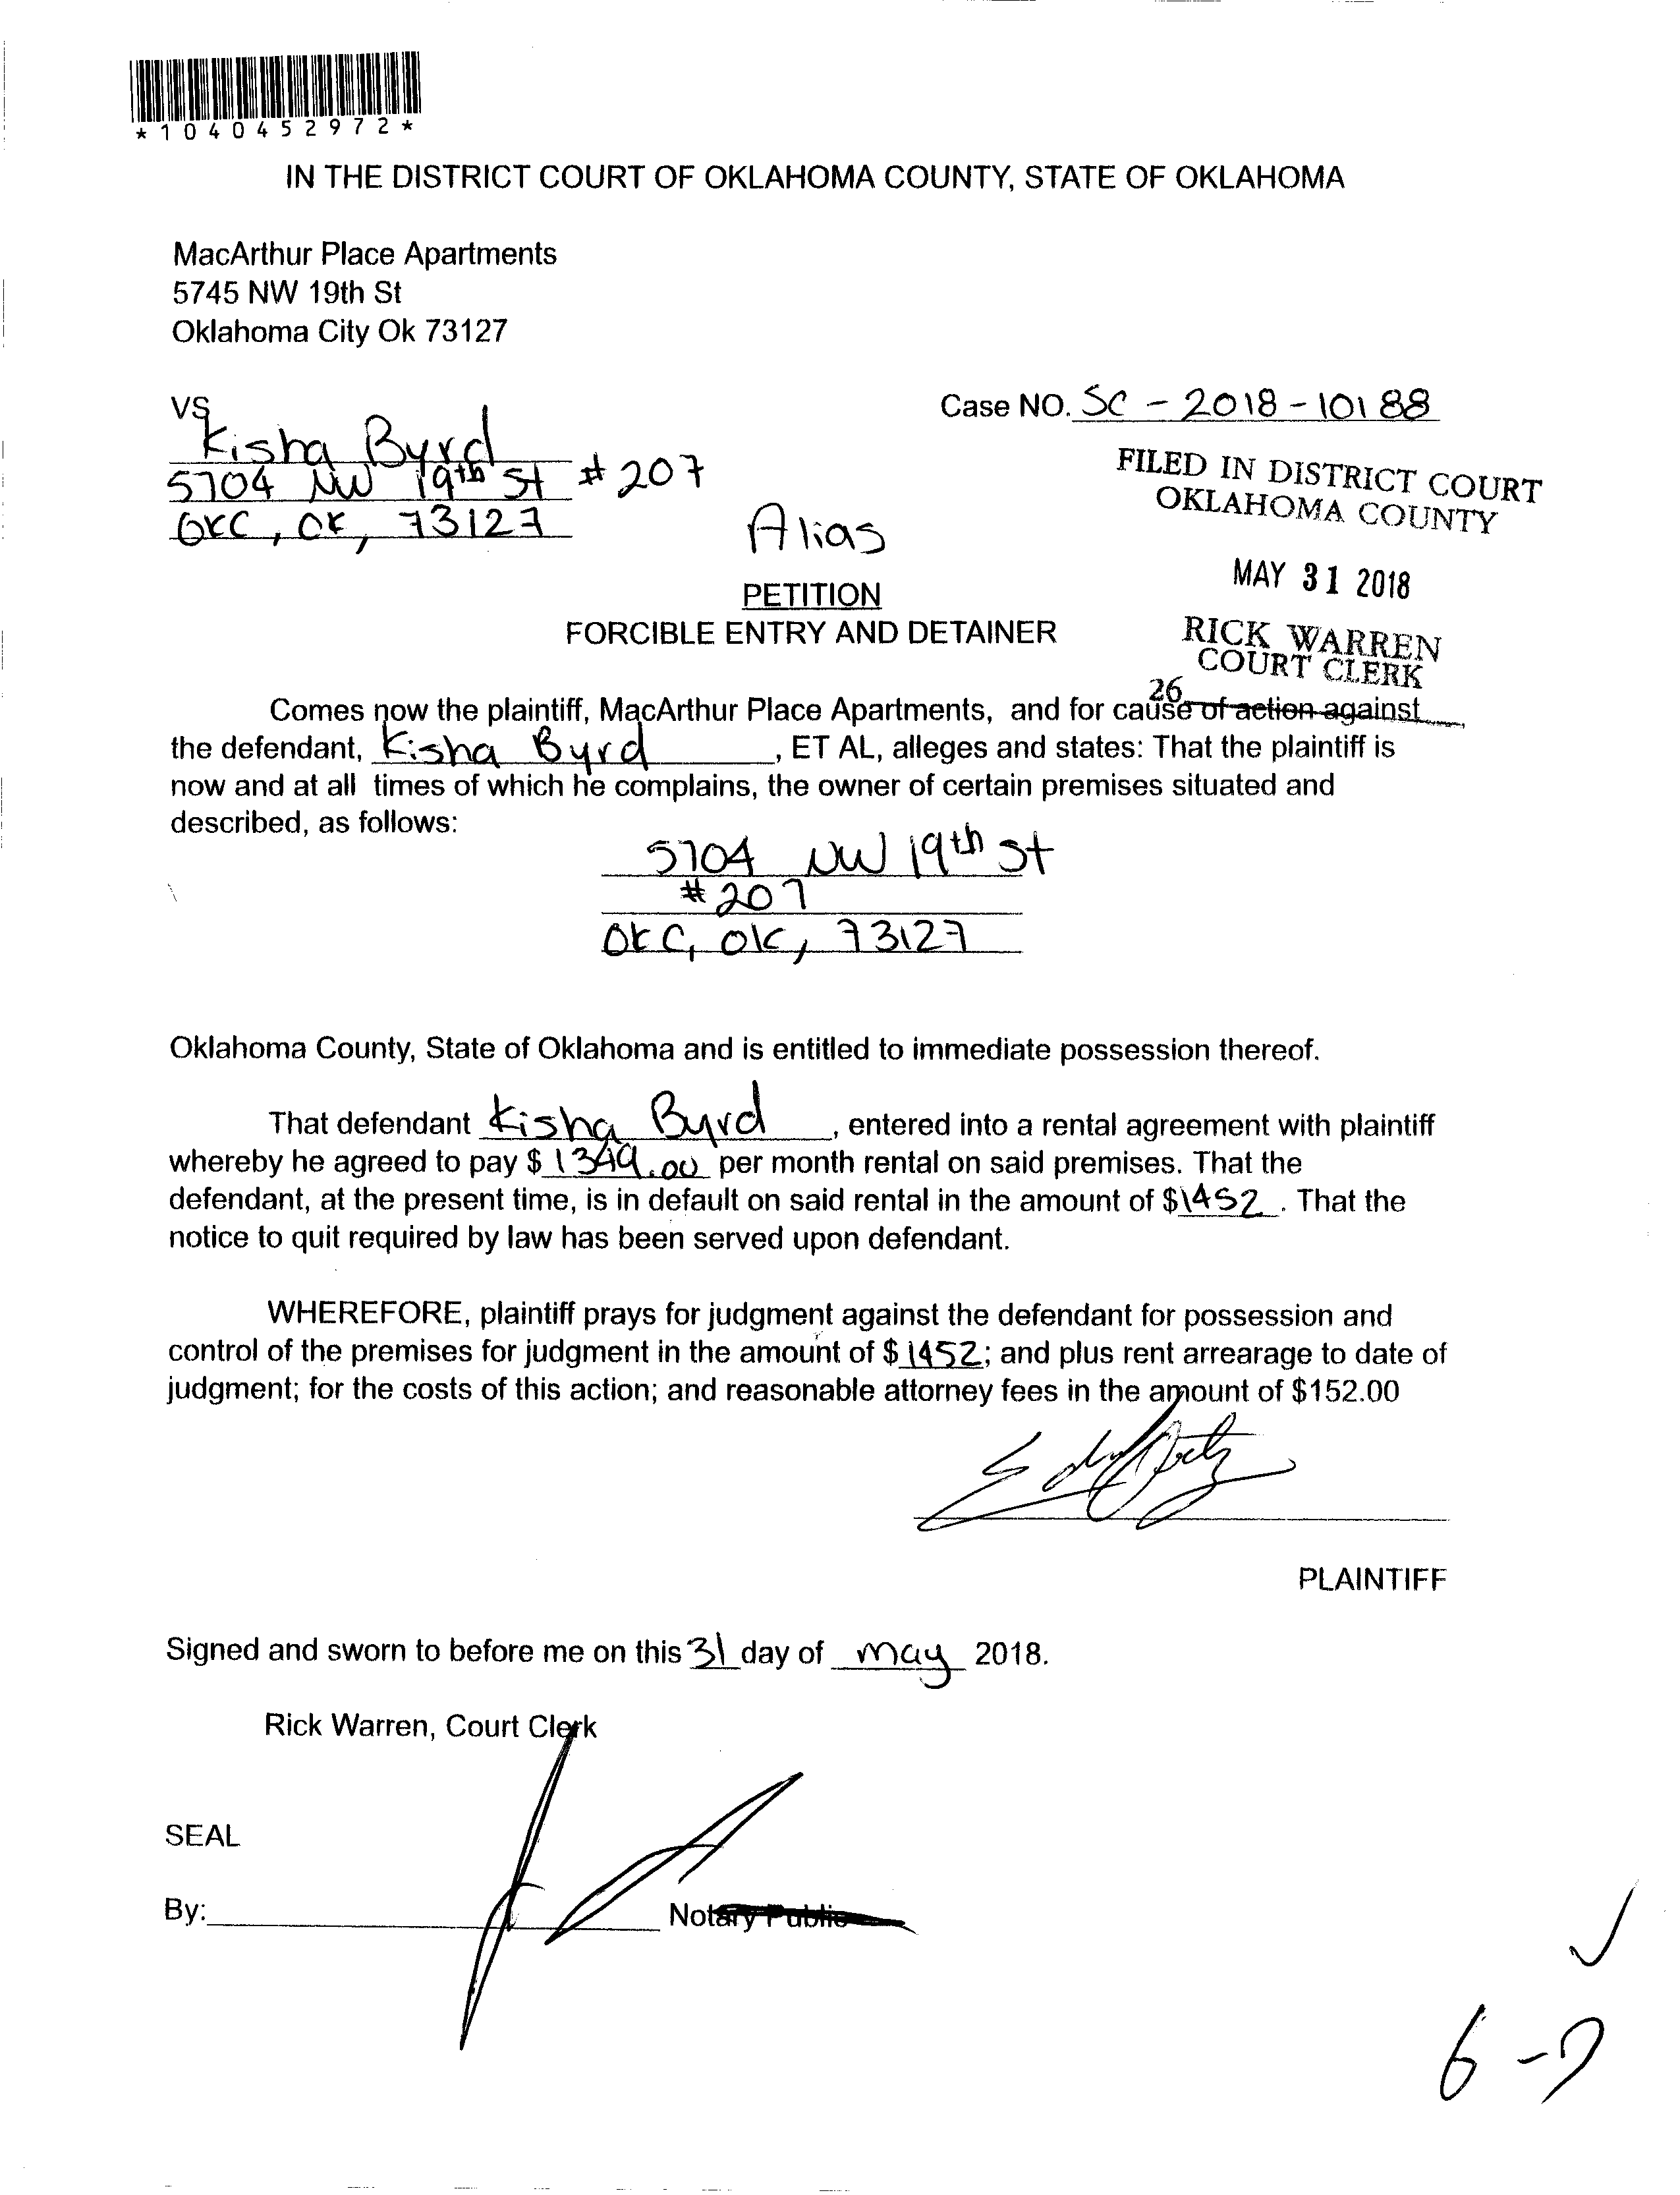 *1040452972*
IN THE DISTRICT COURT OF OKLAHOMA COUNTY, STATE OF OKLAHOMA
MacArthur Place Apartments
5745 NW 19th St
Oklahoma City Ok 73127
VS
Case NO. SC - 2018 - 10188
Kisha Byrd
5704 NW 19th St # 207
OKC, OK, 73127
FILED IN DISTRICT COURT
OKLAHOMA COUNTY
Alias
MAY 31 2018
PETITION
FORCIBLE ENTRY AND DETAINER
RICK WARREN
COURT CLERK
26
Comes now the plaintiff, MacArthur Place Apartments, and for cause of action against
the defendant, Kisha Byrd, ET AL, alleges and states: That the plaintiff is
now and at all times of which he complains, the owner of certain premises situated and
described, as follows:
5704 NW 19th St
#207
OKC, OK, 73127
Oklahoma County, State of Oklahoma and is entitled to immediate possession thereof.
That defendant Kisha Byrd, entered into a rental agreement with plaintiff
whereby he agreed to pay $ 1349.00 per month rental on said premises. That the
defendant, at the present time, is in default on said rental in the amount of $1452. That the
notice to quit required by law has been served upon defendant.
WHEREFORE, plaintiff prays for judgment against the defendant for possession and
control of the premises for judgment in the amount of $ 1452; and plus rent arrearage to date of
judgment; for the costs of this action; and reasonable attorney fees in the amount of $152.00
PLAINTIFF
Signed and sworn to before me on this 31 day of may 2018.
Rick Warren, Court Clerk
SEAL
By: Notary Public
6-7